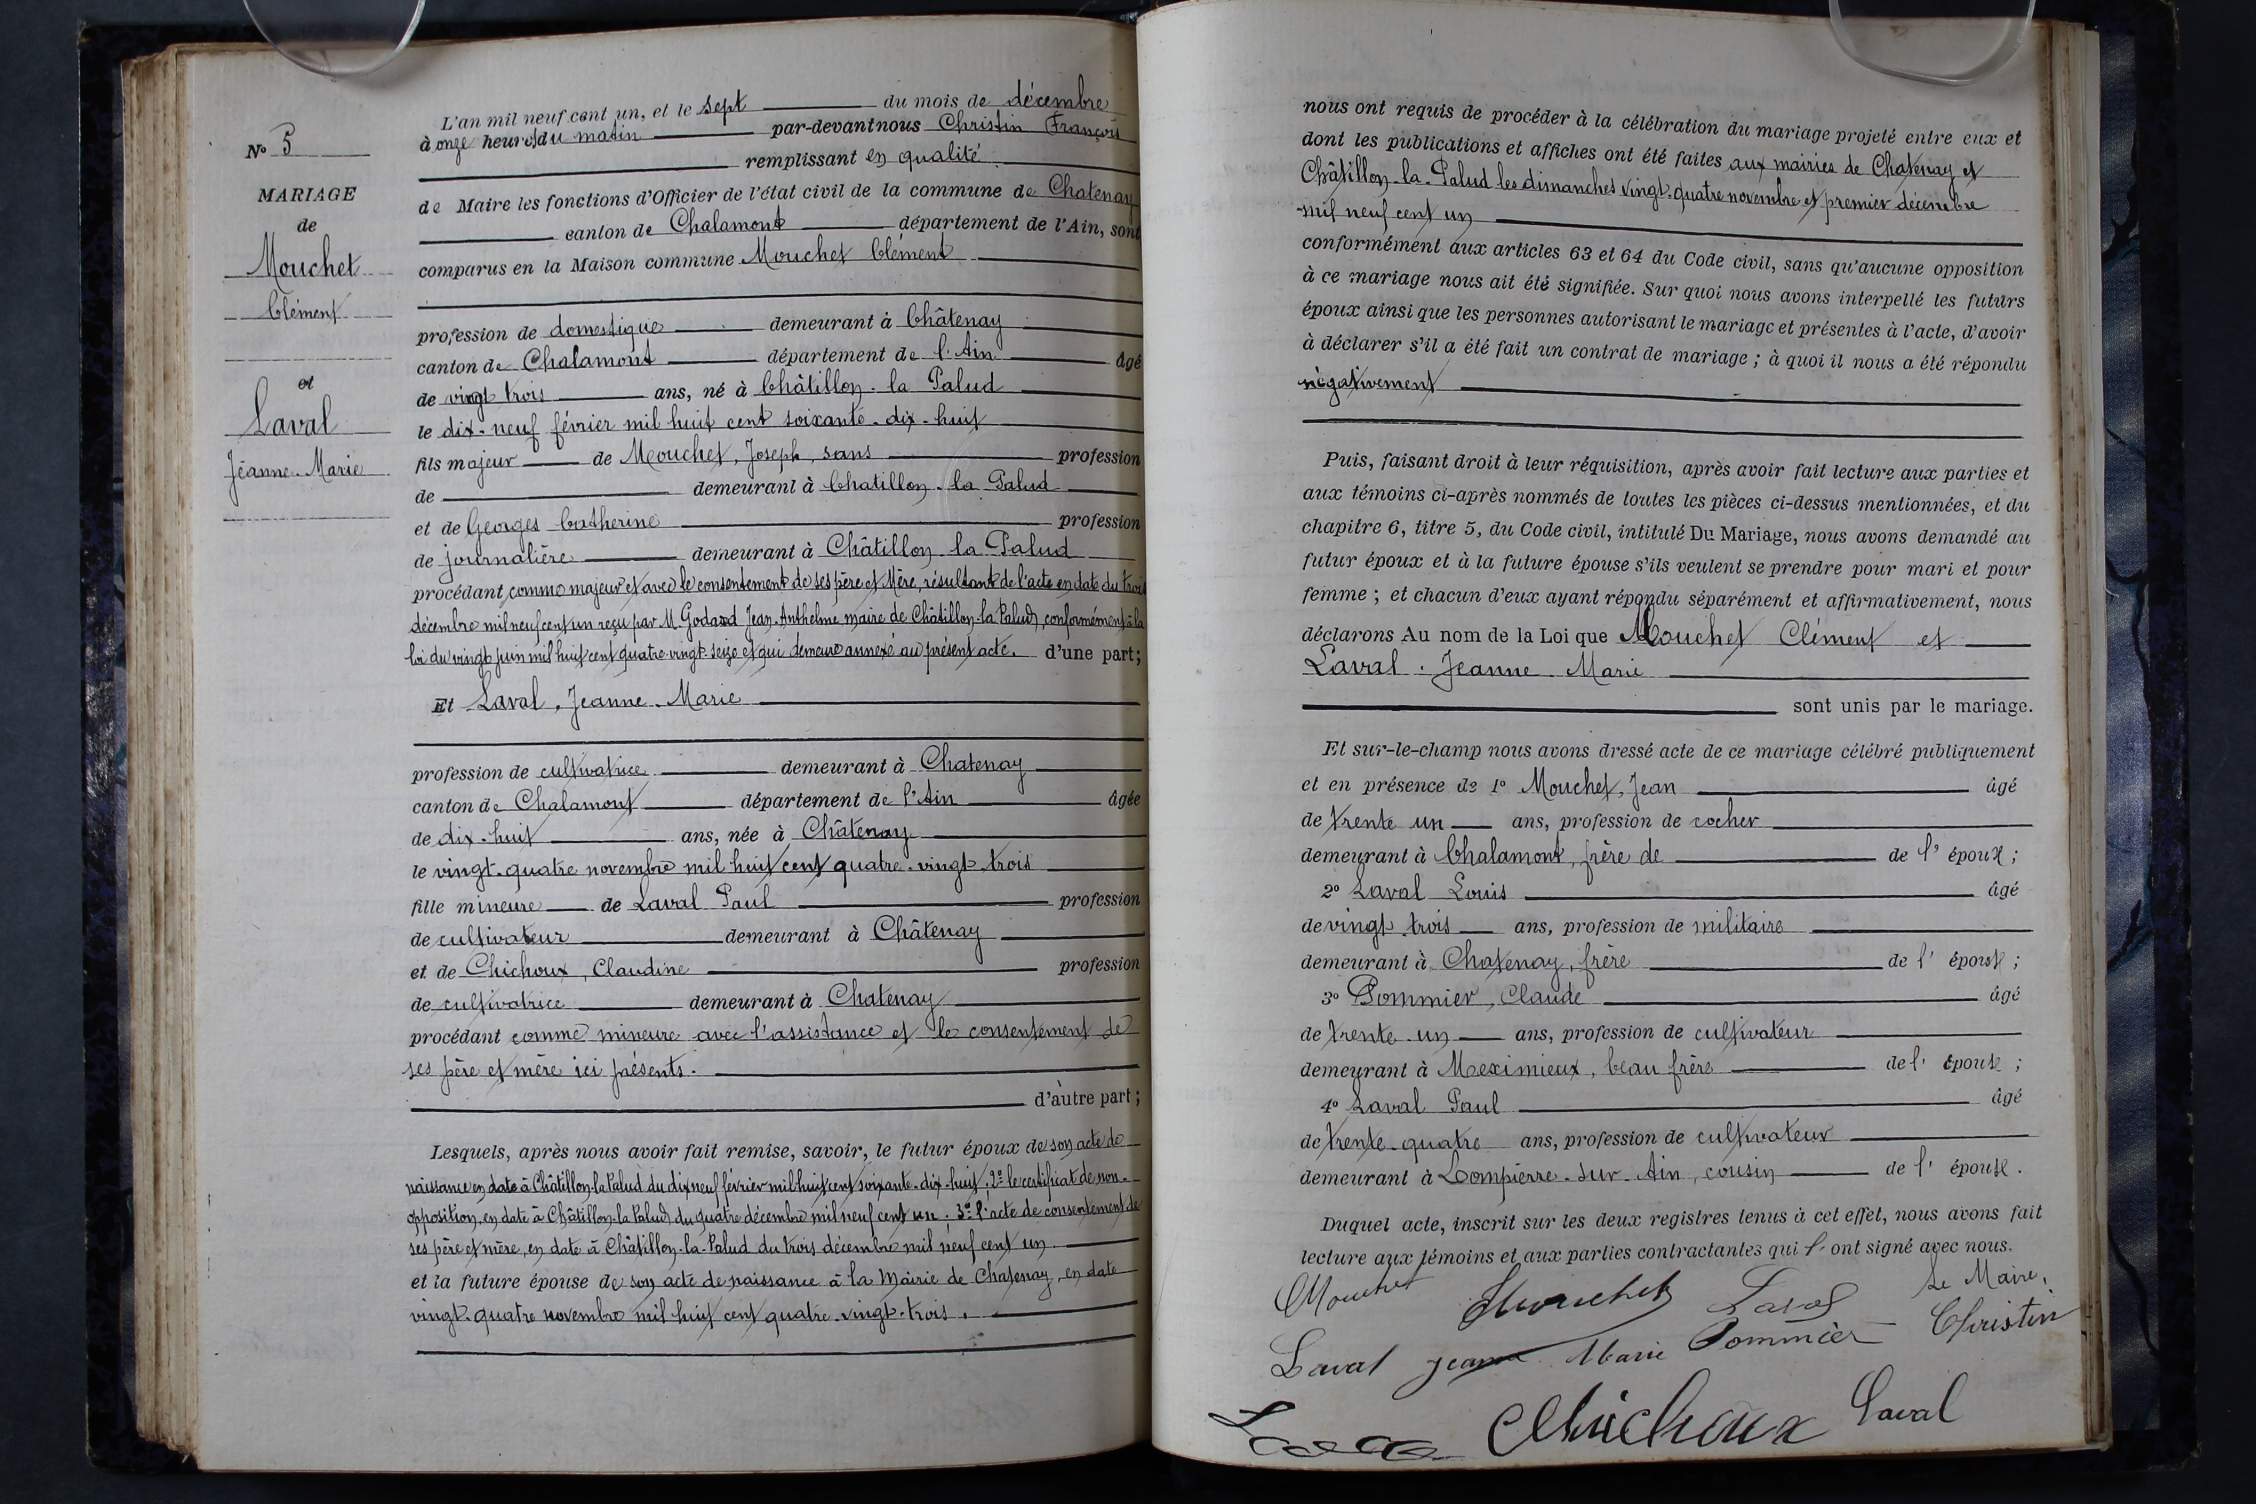 N° 5
MARIAGE
de
Mouchet
Clément
et
Laval
Jeanne-Marie
L'an mil neuf cent un, et le sept du mois de décembre
à onze heures du matin par-devant nous Christin François
remplissant en qualité
de Maire les fonctions d'Officier de l'état civil de la commune de Chatenay
canton de Chalamont département de l'Ain, sont
comparus en la Maison commune Mouchet Clément
profession de domestique demeurant à Châtenay
canton de Chalamont département de l'Ain âgé
de vingt trois ans, né à Châtillon-la Palud
le dix-neuf février mil huit cent soixante-dix-huit
fils majeur de Mouchet, Joseph, sans profession
de demeurant à Chatillon-la Palud
et de Georges Catherine profession
de journalière demeurant à Châtillon la Palud
procédant comme majeur et avec le consentement de ses père et Mère, résultant de l'acte en date du trois
décembre mil neuf cent un reçu par M. Godard Jean-Anthelme maire de Châtillon-la Palud, conformément à la
loi du vingt juin mil huit cent quatre-vingt-seize et qui demeure annexé au présent acte. d'une part;
Et Laval, Jeanne-Marie
profession de cultivatrice demeurant à Chatenay
canton de Chalamont département de l'Ain âgée
de dix-huit ans, née à Châtenay
le vingt-quatre novembre mil huit cent quatre-vingt-trois
fille mineure de Laval Paul profession
de cultivateur demeurant à Châtenay
et de Chichoux, Claudine profession
de cultivatrice demeurant à Chatenay
procédant comme mineure avec l'assistance et le consentement de
ses père et mère ici présents.
d'autre part;
Lesquels, après nous avoir fait remise, savoir, le futur époux de son acte de
naissance en date à Châtillon-la Palud du dix neuf février mil huit cent soixante-dix-huit; 2° le certificat de non-
opposition, en date à Châtillon-la Palud du quatre décembre mil neuf cent un; 3° l'acte de consentement de
ses père et mère, en date à Châtillon-la-Palud du trois décembre mil neuf cent un
et la future épouse de son acte de naissance à la Mairie de Chatenay, en date
vingt-quatre novembre mil huit cent quatre-vingt-trois.
nous ont requis de procéder à la célébration du mariage projeté entre eux et
dont les publications et affiches ont été faites aux mairies de Chatenay et
Châtillon-la-Palud les dimanches vingt-quatre novembre et premier décembre
mil neuf cent un
conformément aux articles 63 et 64 du Code civil, sans qu'aucune opposition
à ce mariage nous ait été signifiée. Sur quoi nous avons interpellé les futurs
époux ainsi que les personnes autorisant le mariage et présentes à l'acte, d'avoir
à déclarer s'il a été fait un contrat de mariage; à quoi il nous a été répondu
négativement
Puis, faisant droit à leur réquisition, après avoir fait lecture aux parties et
aux témoins ci-après nommés de toutes les pièces ci-dessus mentionnées, et du
chapitre 6, titre 5, du Code civil, intitulé Du Mariage, nous avons demandé au
futur époux et à la future épouse s'ils veulent se prendre pour mari et pour
femme; et chacun d'eux ayant répondu séparément et affirmativement, nous
déclarons Au nom de la Loi que Mouchet Clément et
Laval-Jeanne Marie
sont unis par le mariage.
Et sur-le-champ nous avons dressé acte de ce mariage célébré publiquement
et en présence de 1° Mouchet, Jean âgé
de trente un ans, profession de cocher
demeurant à Chalamont, frère de de l'époux;
2° Laval Louis âgé
de vingt-trois ans, profession de militaire
demeurant à Chatenay, frère de l'épouse;
3° Pommier, Claude âgé
de trente-un ans, profession de cultivateur
demeurant à Meximieux, beau frère de l'épouse;
4° Laval Paul âgé
de trente-quatre ans, profession de cultivateur
demeurant à Dompierre-sur-Ain, cousin de l'épouse.
Duquel acte, inscrit sur les deux registres tenus à cet effet, nous avons fait
lecture aux témoins et aux parties contractantes qui l'ont signé avec nous.
Mouchet Mouchet Laval Le Maire,
Laval Jeanne Marie Pommier Christin
Chichoux Laval